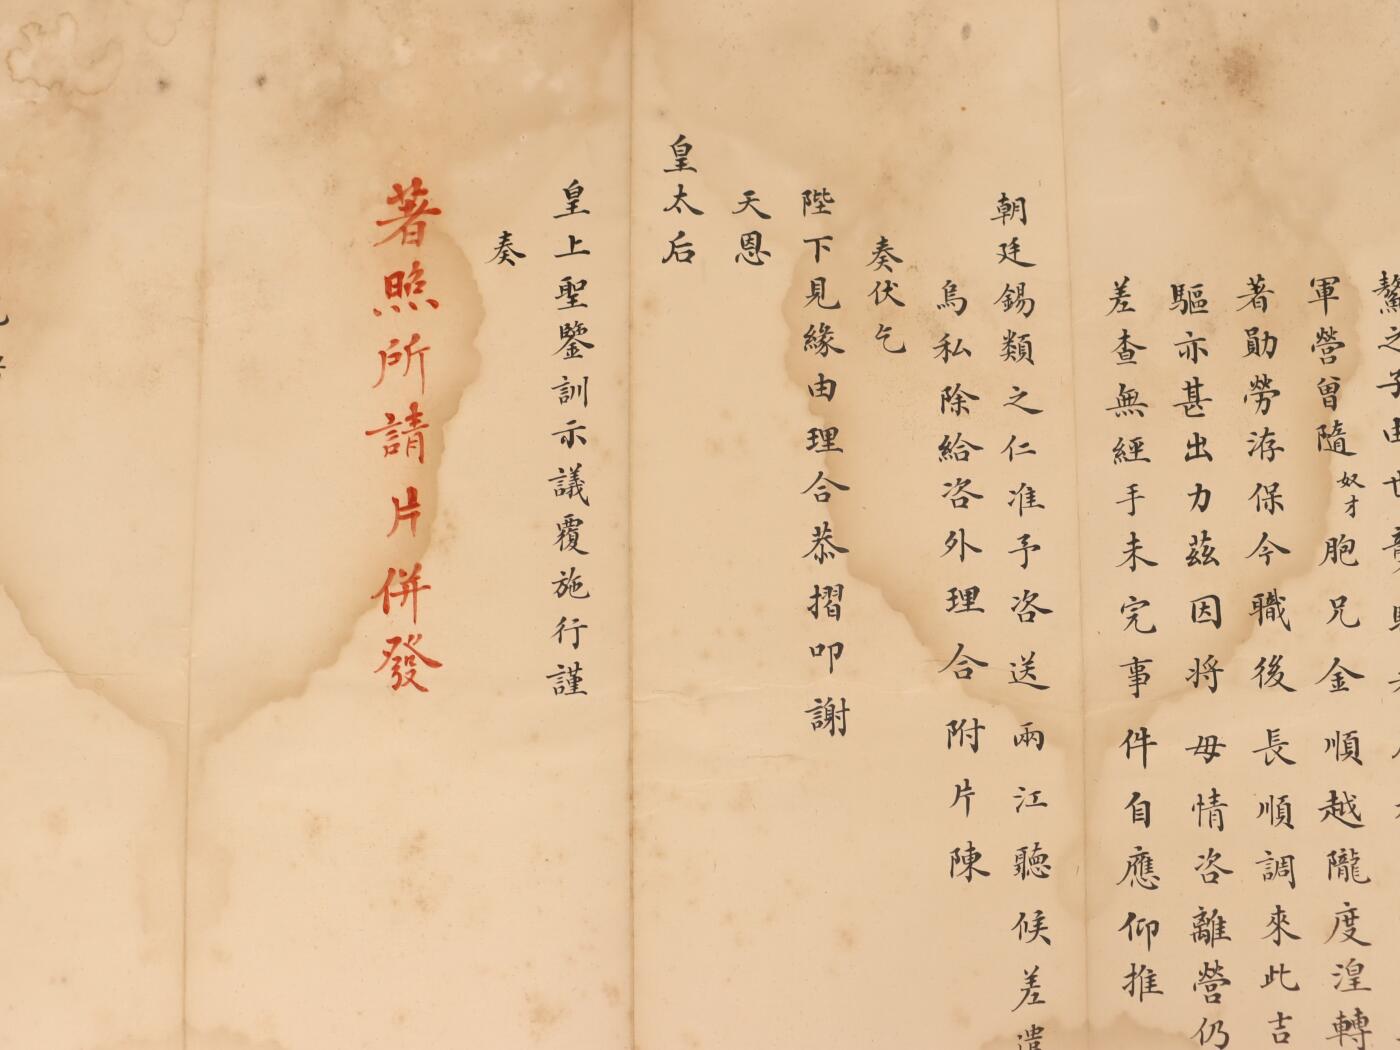 鰲之子由世
軍營曾隨奴才胞兄金順越隴度湟轉
著勛勞洊保今職後長順調來此吉
驅亦甚出力茲因將母情咨離營仍
差查無經手未完事件自應仰推
朝廷錫類之仁准予咨送兩江聽候差遣
烏私除給咨外理合附片陳
奏伏乞
陛下見緣由理合恭摺叩謝
天恩
皇太后
皇上聖鑒訓示議覆施行謹
奏
著照所請片併發